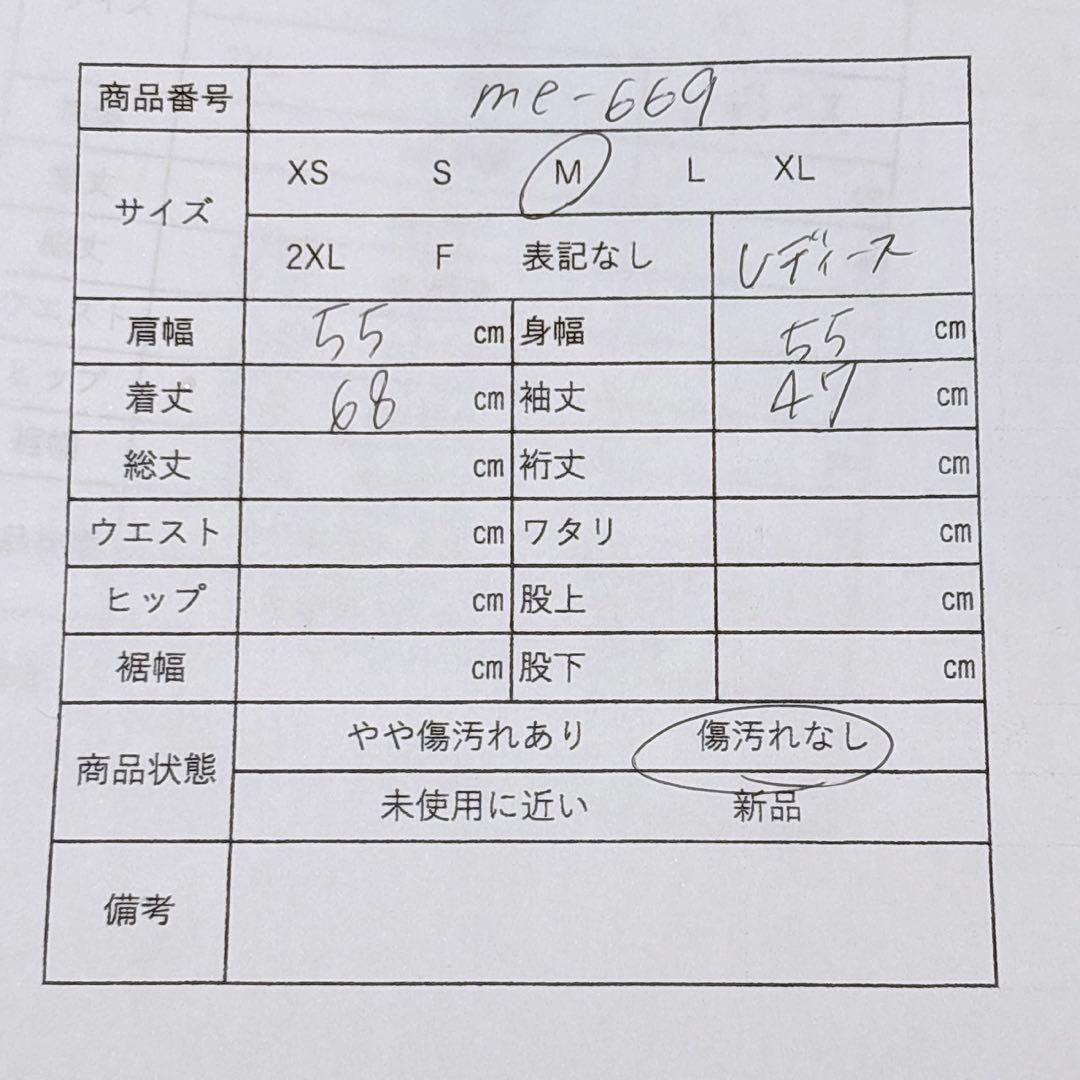 商品番号 me-669
サイズ XS S M L XL
2XL F 表記なし レディース
肩幅 55 cm 身幅 55 cm
着丈 68 cm 袖丈 47 cm
総丈 cm 裄丈 cm
ウエスト cm ワタリ cm
ヒップ cm 股上 cm
裾幅 cm 股下 cm
商品状態 やや傷汚れあり 傷汚れなし
未使用に近い 新品
備考